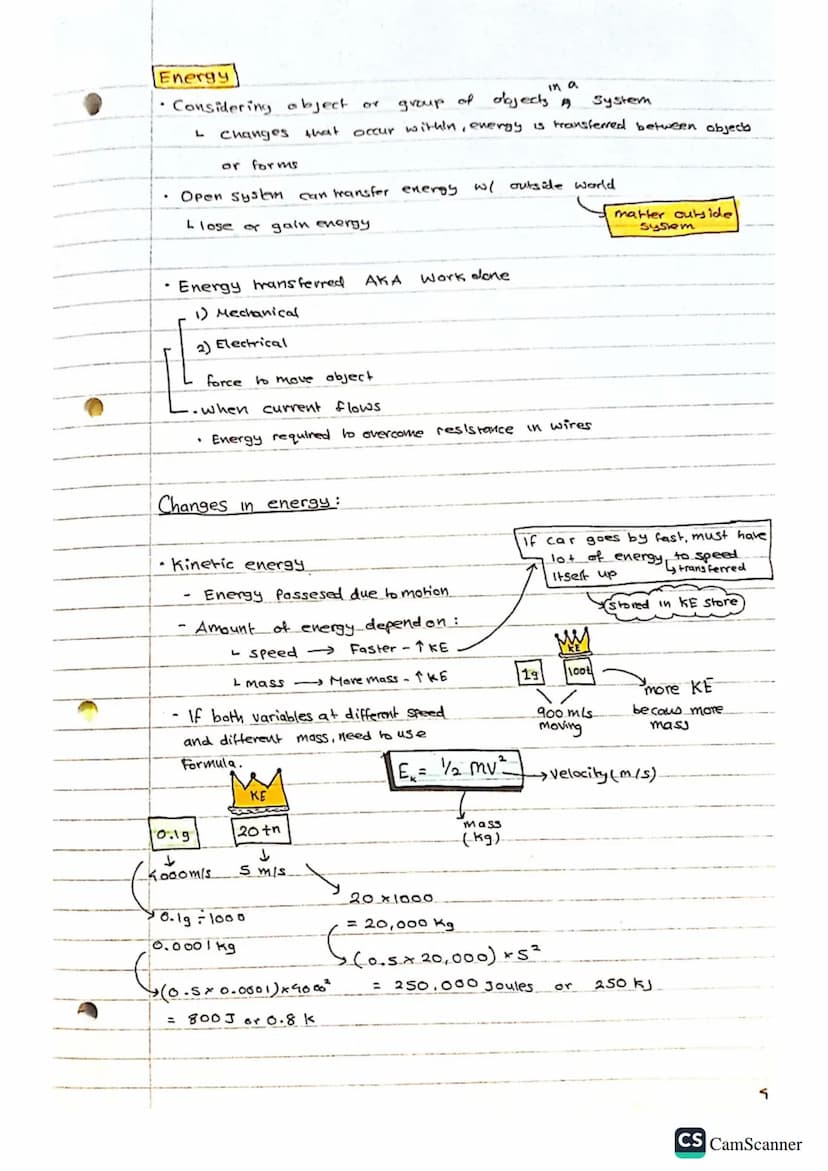 Energy
• Considering object or group of objects in a system
↳ changes that occur within, energy is transferred between objects
or forms
• Open system can transfer energy w/ outside world
matter outside
system
↳ lose or gain energy
• Energy transferred AKA work done
1) Mechanical
2) Electrical
force to move object
• when current flows
• Energy required to overcome resistance in wires
Changes in energy:
If car goes by fast, must have
lot of energy to speed
↳ transferred
itself up
stored in KE store
• Kinetic energy
- Energy possesed due to motion
- Amount of energy depend on:
↳ speed → Faster - ↑ KE
↳ mass → More mass - ↑ KE
KE
1g 100t
900 m/s
moving
more KE
becaus more
mass
- If both variables at different speed
and different mass, need to use
formula.
Eₖ = 1/2 mv² → velocity (m/s)
mass
(kg)
KE
0.1g 20tn
4000m/s 5 m/s
20 × 1000
= 20,000 kg
(0.5 × 20,000) × 5²
= 250,000 Joules or 250 kJ
0.1g ÷ 1000
0.0001kg
(0.5 × 0.0001) × 4000²
= 800J or 0.8 k
CS CamScanner